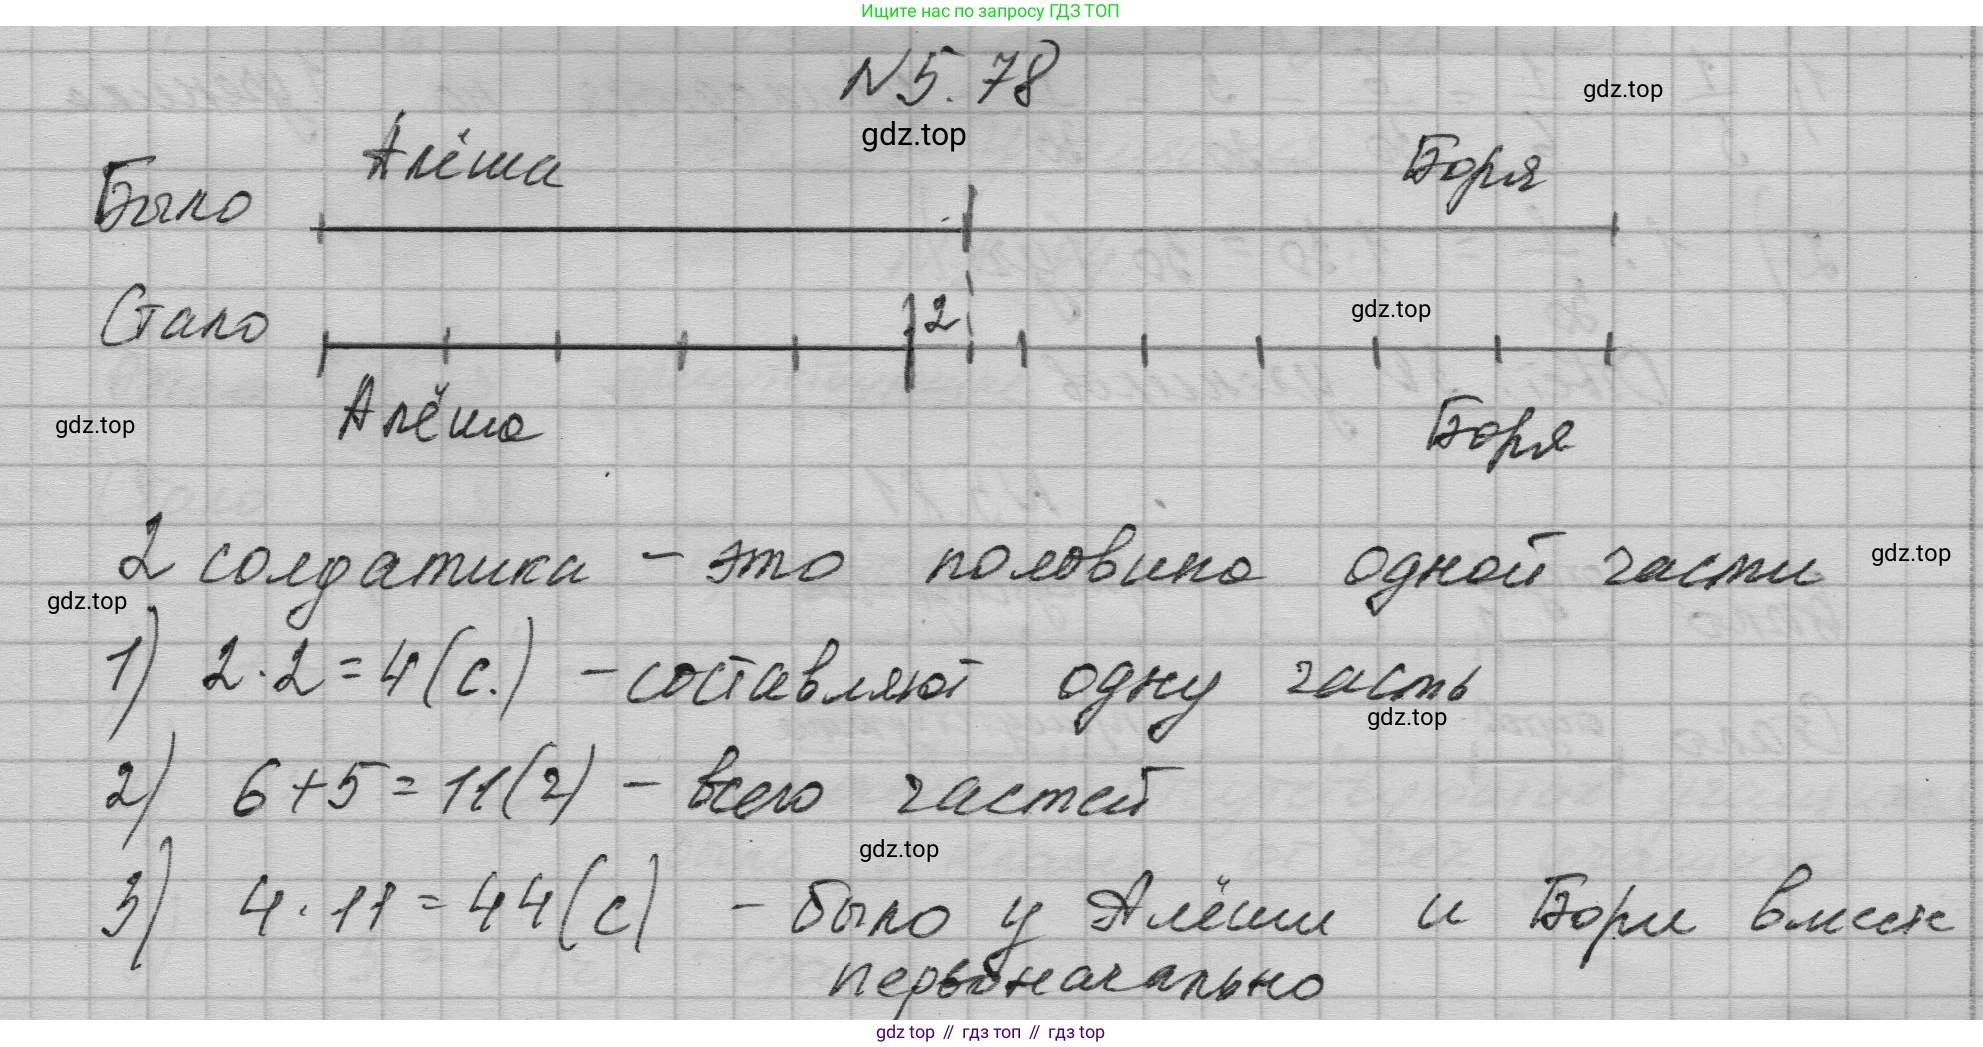 Ищите нас по запросу ГДЗ ТОП
N 5.78
gdz.top
gdz.top
Алёша
Боря
Было
Стало
2
gdz.top
Алёша
Боря
gdz.top
2 солдатика – это половина одной части
gdz.top
gdz.top
1) 2·2=4(с.) – составляют одну часть
gdz.top
2) 6+5=11(ч) – всего частей
gdz.top
3) 4·11=44(с) – было у Алёши и Бори вместе
первоначально
gdz top // гдз топ // gdz top